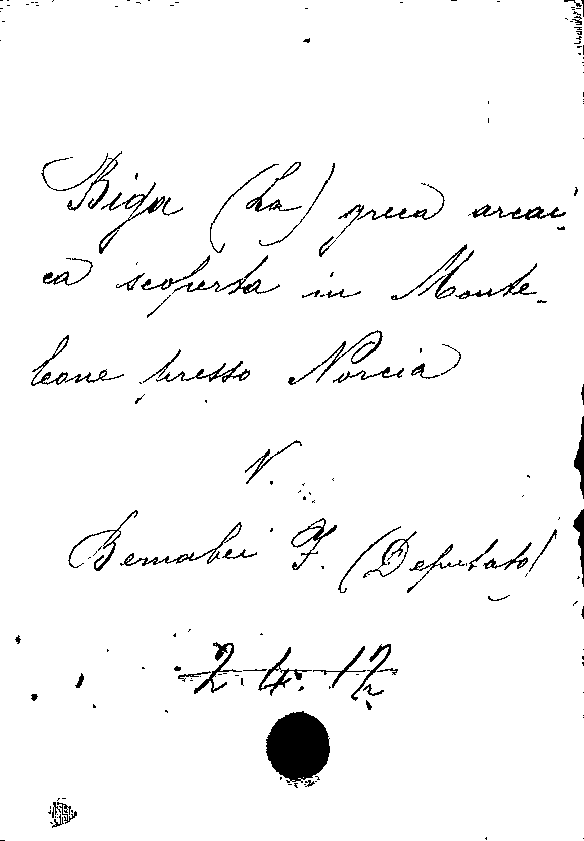 Biga (La) greca arcai-
ca scoperta in Monte-
leone presso Norcia
V.
Bernabei F. (Deputato)
2. 4. 12